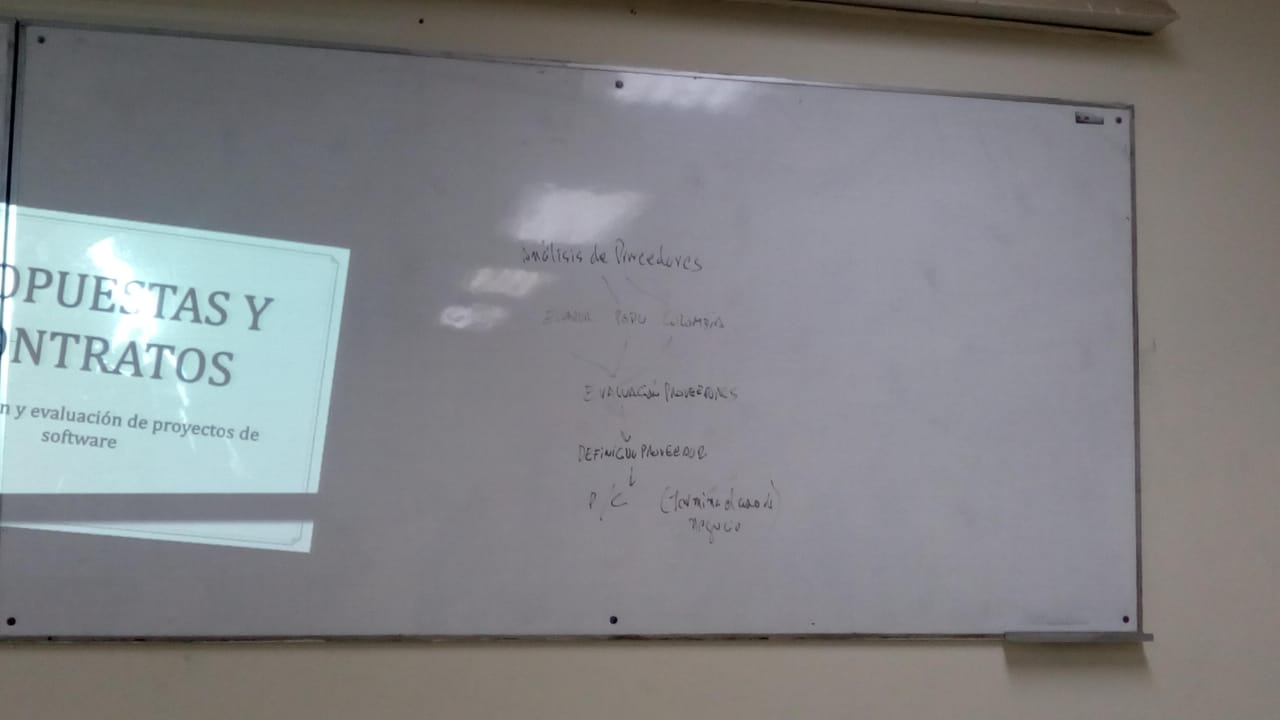 OPUESTAS Y
ONTRATOS
n y evaluación de proyectos de
software
Análisis de Proveedores
PERU COLOMBIA
EVALUACIÓN PROVEEDORES
DEFINICIÓN PROVEEDOR
P/C (Termina el caso de
negocio